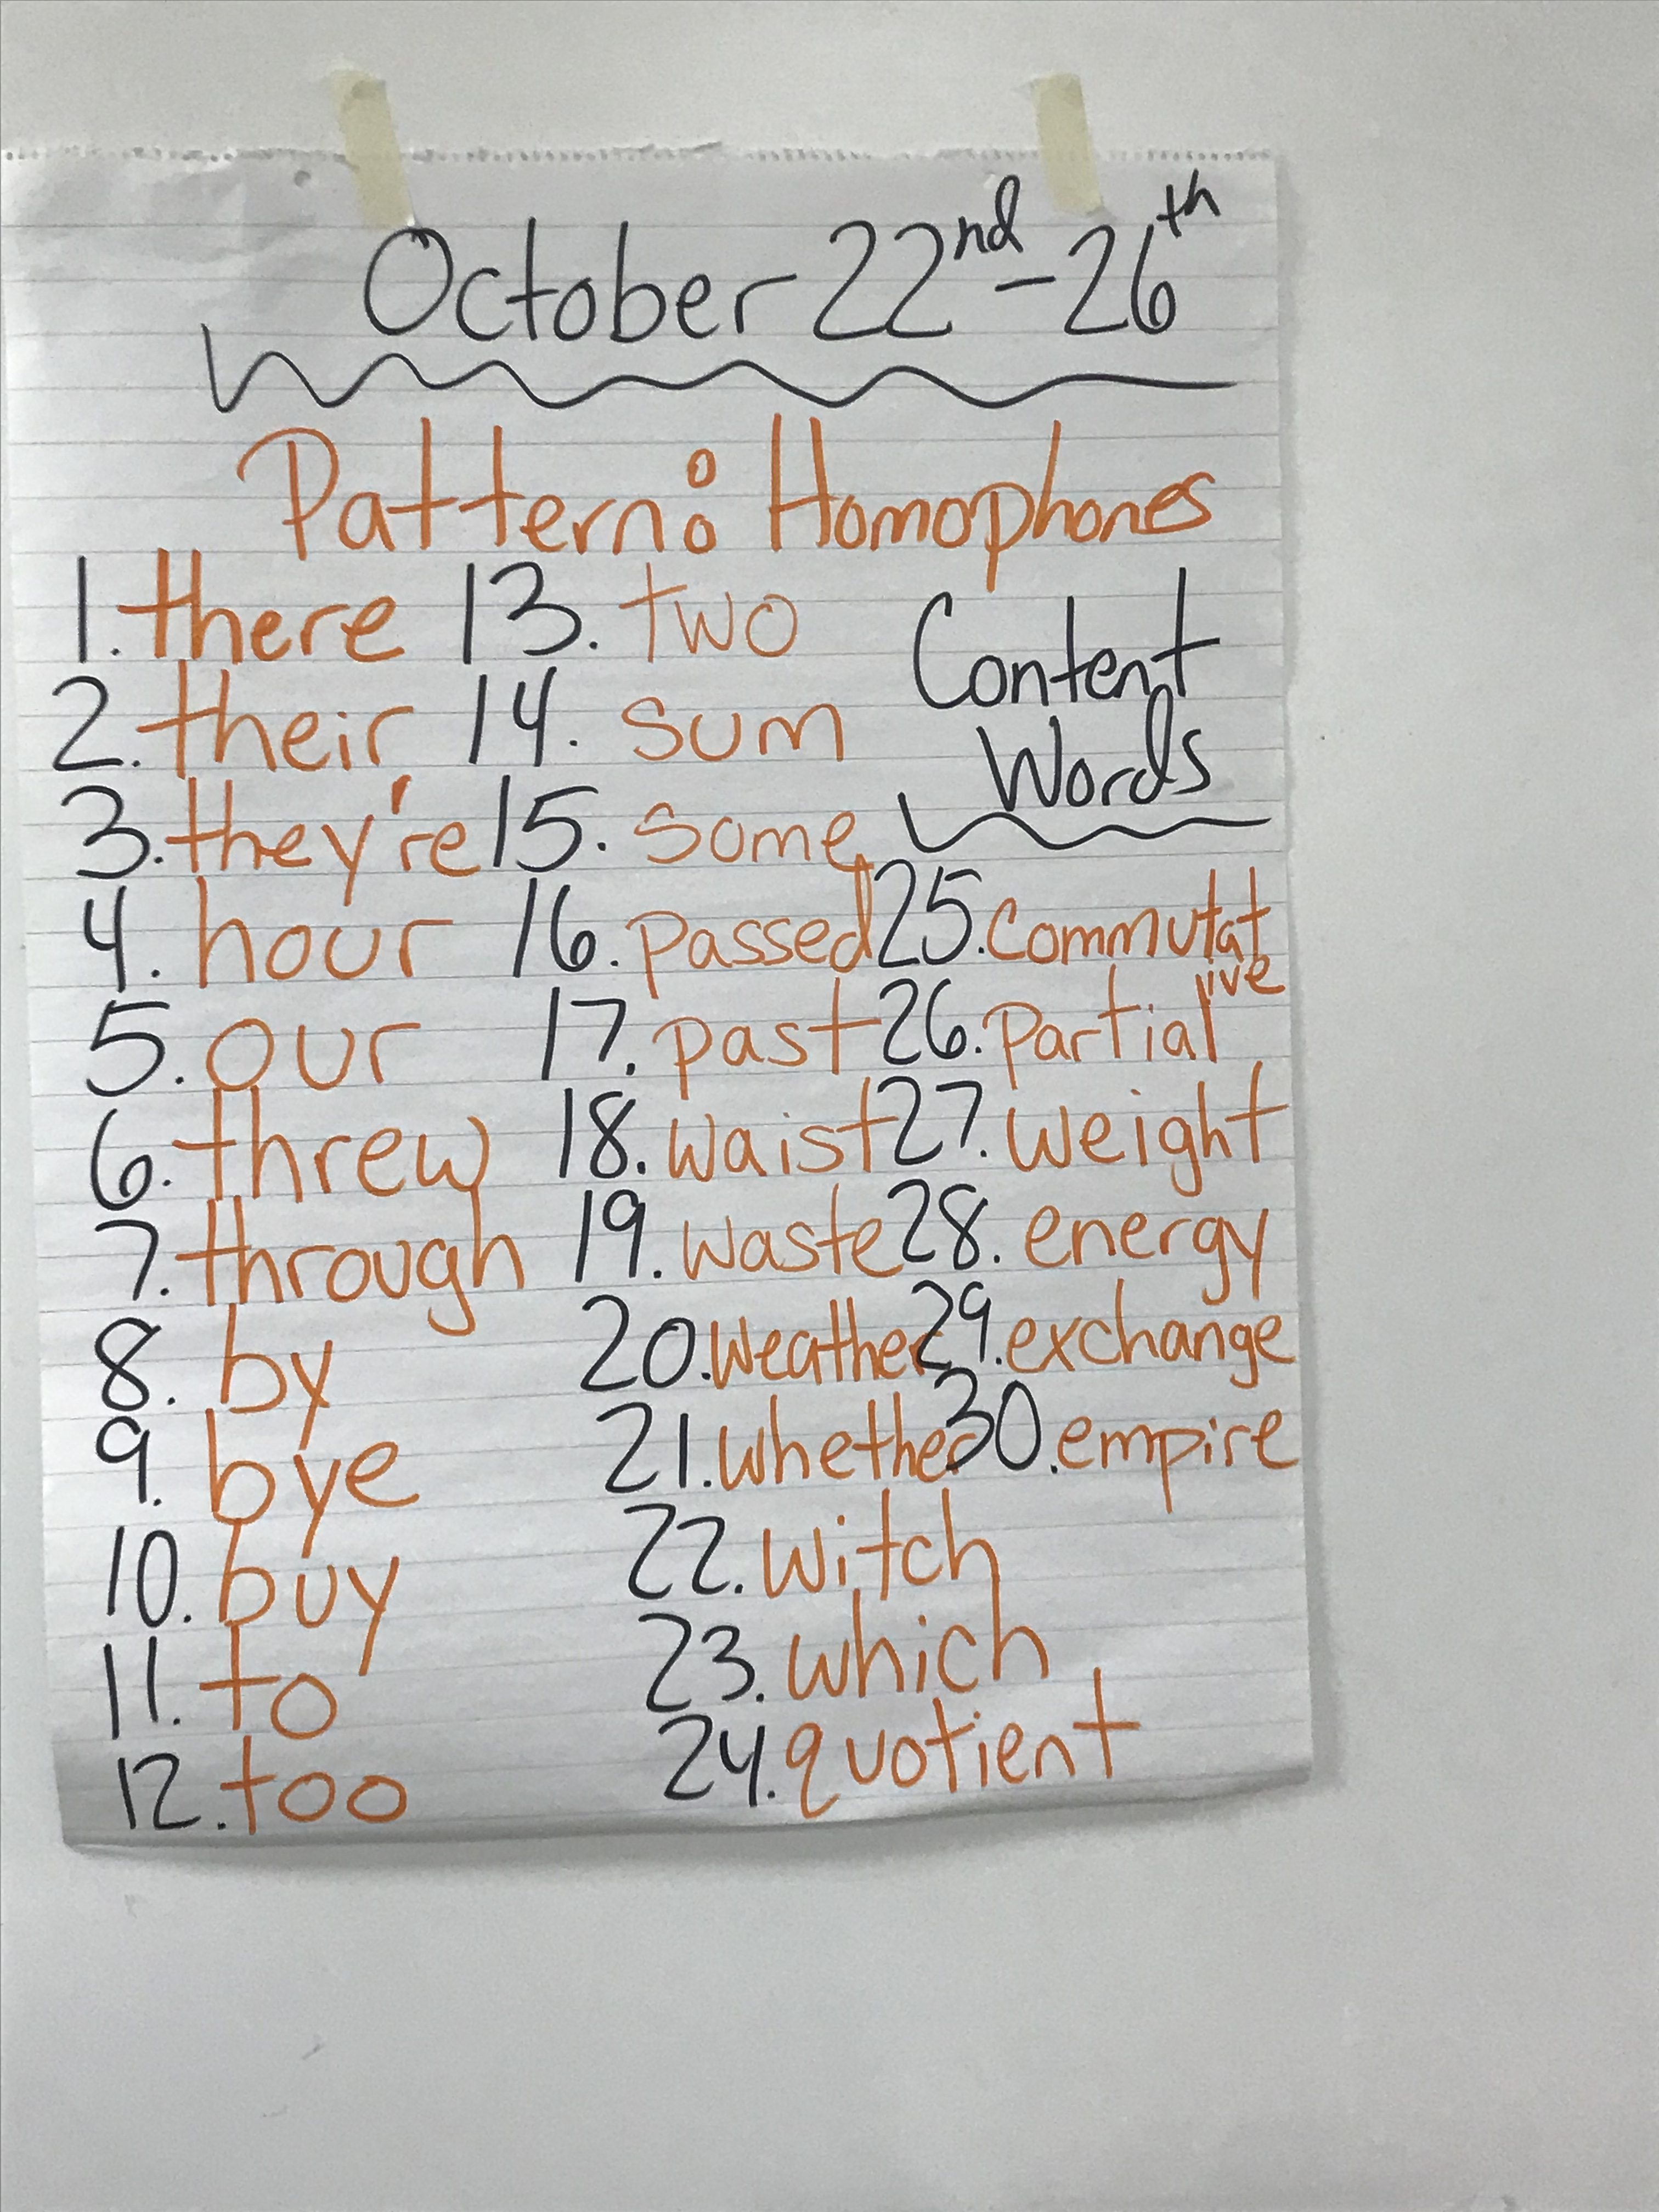 October 22nd-26th
Pattern: Homophones
1. there
2. their
3. they're
4. hour
5. our
6. threw
7. through
8. by
9. bye
10. buy
11. to
12. too
13. two
14. sum
15. some
16. passed
17. past
18. waist
19. waste
20. weather
21. whether
22. witch
23. which
24. quotient
Content
Words
25. commutat
ive
26. partial
27. weight
28. energy
29. exchange
30. empire